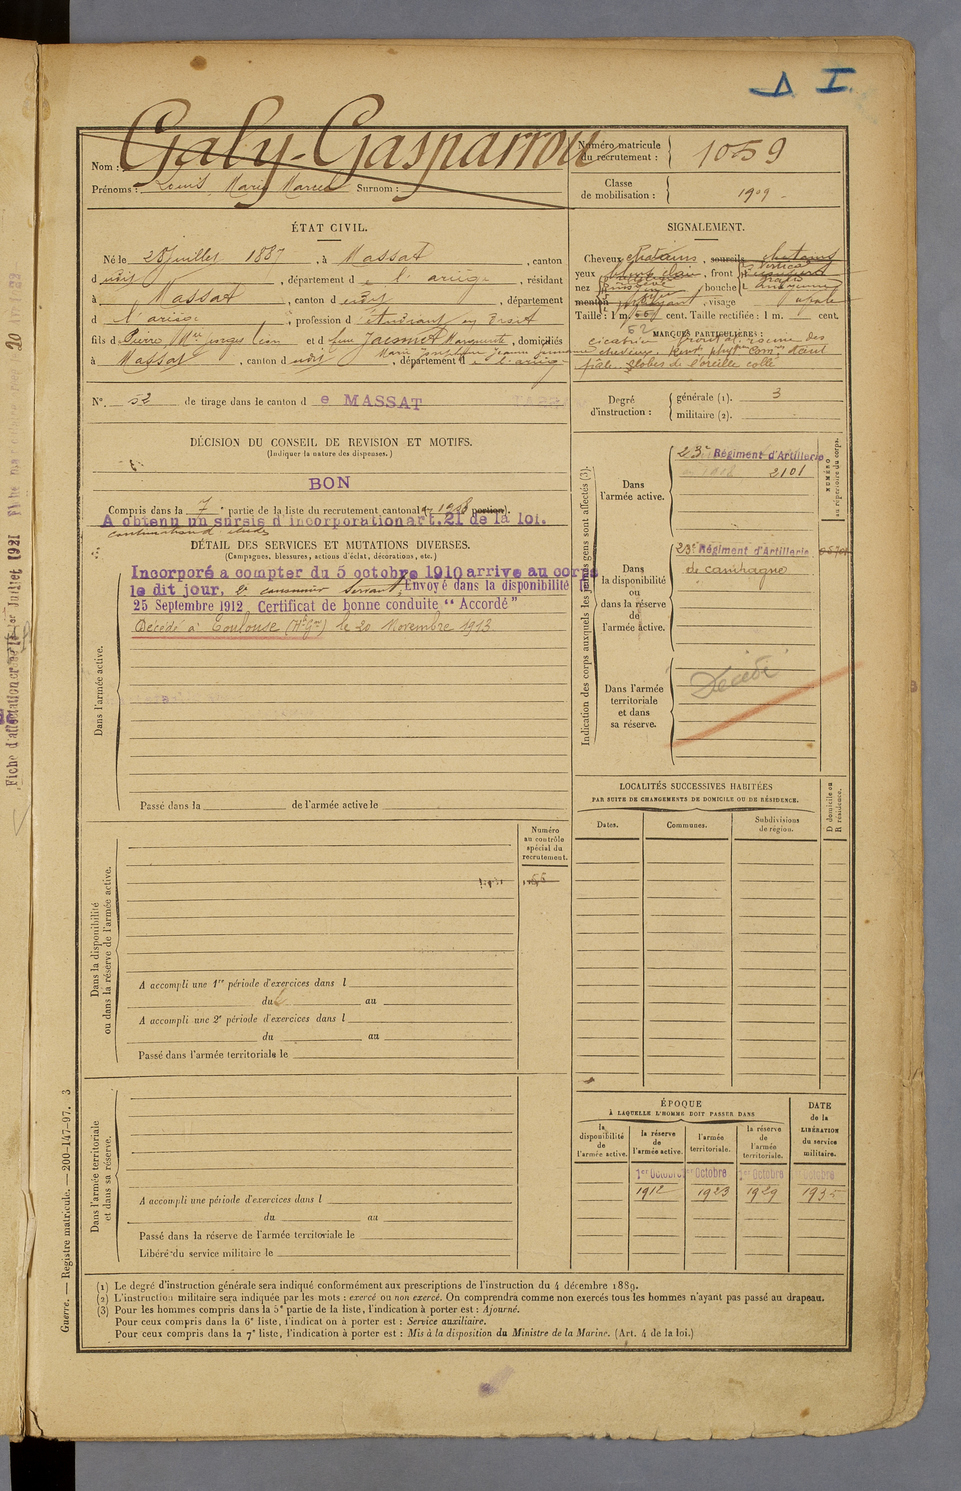 Δ I.
Nom : Galy-Gasparrou
Prénoms : Louis Marie Marcel Surnom :
Numéro matricule du recrutement : 1059
Classe de mobilisation : 1909
ÉTAT CIVIL.
Né le 28 juillet 1887, à Massat, canton
dudit, département de l'ariège, résidant
à Massat, canton dudit, département
d l'ariège, profession d'étudiant en Droit
fils de Pierre, Mie, georges Léon et de feue Jacomet Marguerite, domiciliés
Marie Joséphine Jeanne
à Massat, canton dudit, département de l'ariège
N°. 52 de tirage dans le canton de MASSAT
SIGNALEMENT.
Cheveux chatains, sourcils chatains
yeux, front
nez, bouche
menton, visage ovale
Taille : 1 m. cent. Taille rectifiée : 1 m. cent.
62
MARQUES PARTICULIÈRES :
cicatrice front racine des
cheveux.
globes de l'oreille collé
Degré d'instruction : générale (1). 3
militaire (2).
DÉCISION DU CONSEIL DE REVISION ET MOTIFS.
(Indiquer la nature des dispenses.)
BON
Compris dans la 7e partie de la liste du recrutement cantonal de 1908 portion).
A obtenu un sursis d'incorporation art. 21 de la loi.
continuation d'études
DÉTAIL DES SERVICES ET MUTATIONS DIVERSES.
(Campagnes, blessures, actions d'éclat, décorations, etc.)
Dans l'armée active.
Incorporé a compter du 5 octobre 1910 arrive au corps
le dit jour, 2e canonnier Servant, Envoyé dans la disponibilité le
25 Septembre 1912. Certificat de bonne conduite "Accordé"
Décédé à Toulouse (Hte Gne) le 20 Novembre 1913
Passé dans la de l'armée active le
Indication des corps auxquels les jeunes gens sont affectés (3).
NUMÉRO au répertoire du corps.
Dans l'armée active.
23e Régiment d'Artillerie
2101
Dans la disponibilité ou dans la réserve de l'armée active.
23e Régiment d'Artillerie
de campagne
Dans l'armée territoriale et dans sa réserve.
Décédé
LOCALITÉS SUCCESSIVES HABITÉES
PAR SUITE DE CHANGEMENTS DE DOMICILE OU DE RÉSIDENCE.
Dates. Communes. Subdivisions de région.
D domicile ou R résidence.
Numéro au contrôle spécial du recrutement.
Dans la disponibilité ou dans la réserve de l'armée active.
A accompli une 1re période d'exercices dans l
du au
A accompli une 2e période d'exercices dans l
du au
Passé dans l'armée territoriale le
Dans l'armée territoriale et dans sa réserve.
A accompli une période d'exercices dans l
du au
Passé dans la réserve de l'armée territoriale le
Libéré du service militaire le
ÉPOQUE
À LAQUELLE L'HOMME DOIT PASSER DANS
la disponibilité de l'armée active.
la réserve de l'armée active.
l'armée territoriale.
la réserve de l'armée territoriale.
DATE de la LIBÉRATION du service militaire.
1er Octobre 1er Octobre 1er Octobre Octobre
1912 1923 1929 1935
(1) Le degré d'instruction générale sera indiqué conformément aux prescriptions de l'instruction du 4 décembre 1889.
(2) L'instruction militaire sera indiquée par les mots : exercé ou non exercé. On comprendra comme non exercés tous les hommes n'ayant pas passé au drapeau.
(3) Pour les hommes compris dans la 5e partie de la liste, l'indication à porter est : Ajourné.
Pour ceux compris dans la 6e liste, l'indication à porter est : Service auxiliaire.
Pour ceux compris dans la 7e liste, l'indication à porter est : Mis à la disposition du Ministre de la Marine. (Art. 4 de la loi.)
Guerre. — Registre matricule. — 200-147-97. 3